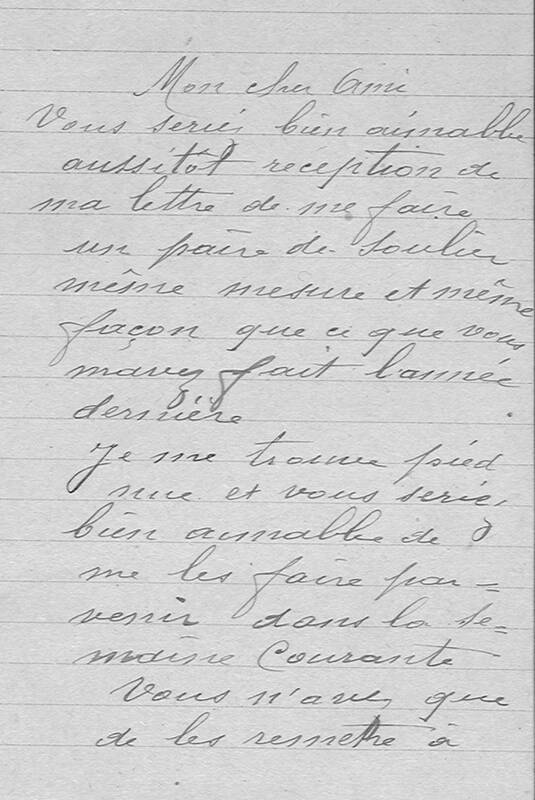 Mon cher Ami
Vous seriez bien aimable
aussitôt reception de
ma lettre de me faire
un paire de Soulier
même mesure et même
façon que ci que vous
m'avez fait l'année
dernière
Je me trouve pied
nue et vous seriez
bien aimable de
me les faire par=
venir dans la se=
maine Courante
Vous n'avez que
de les remettre à